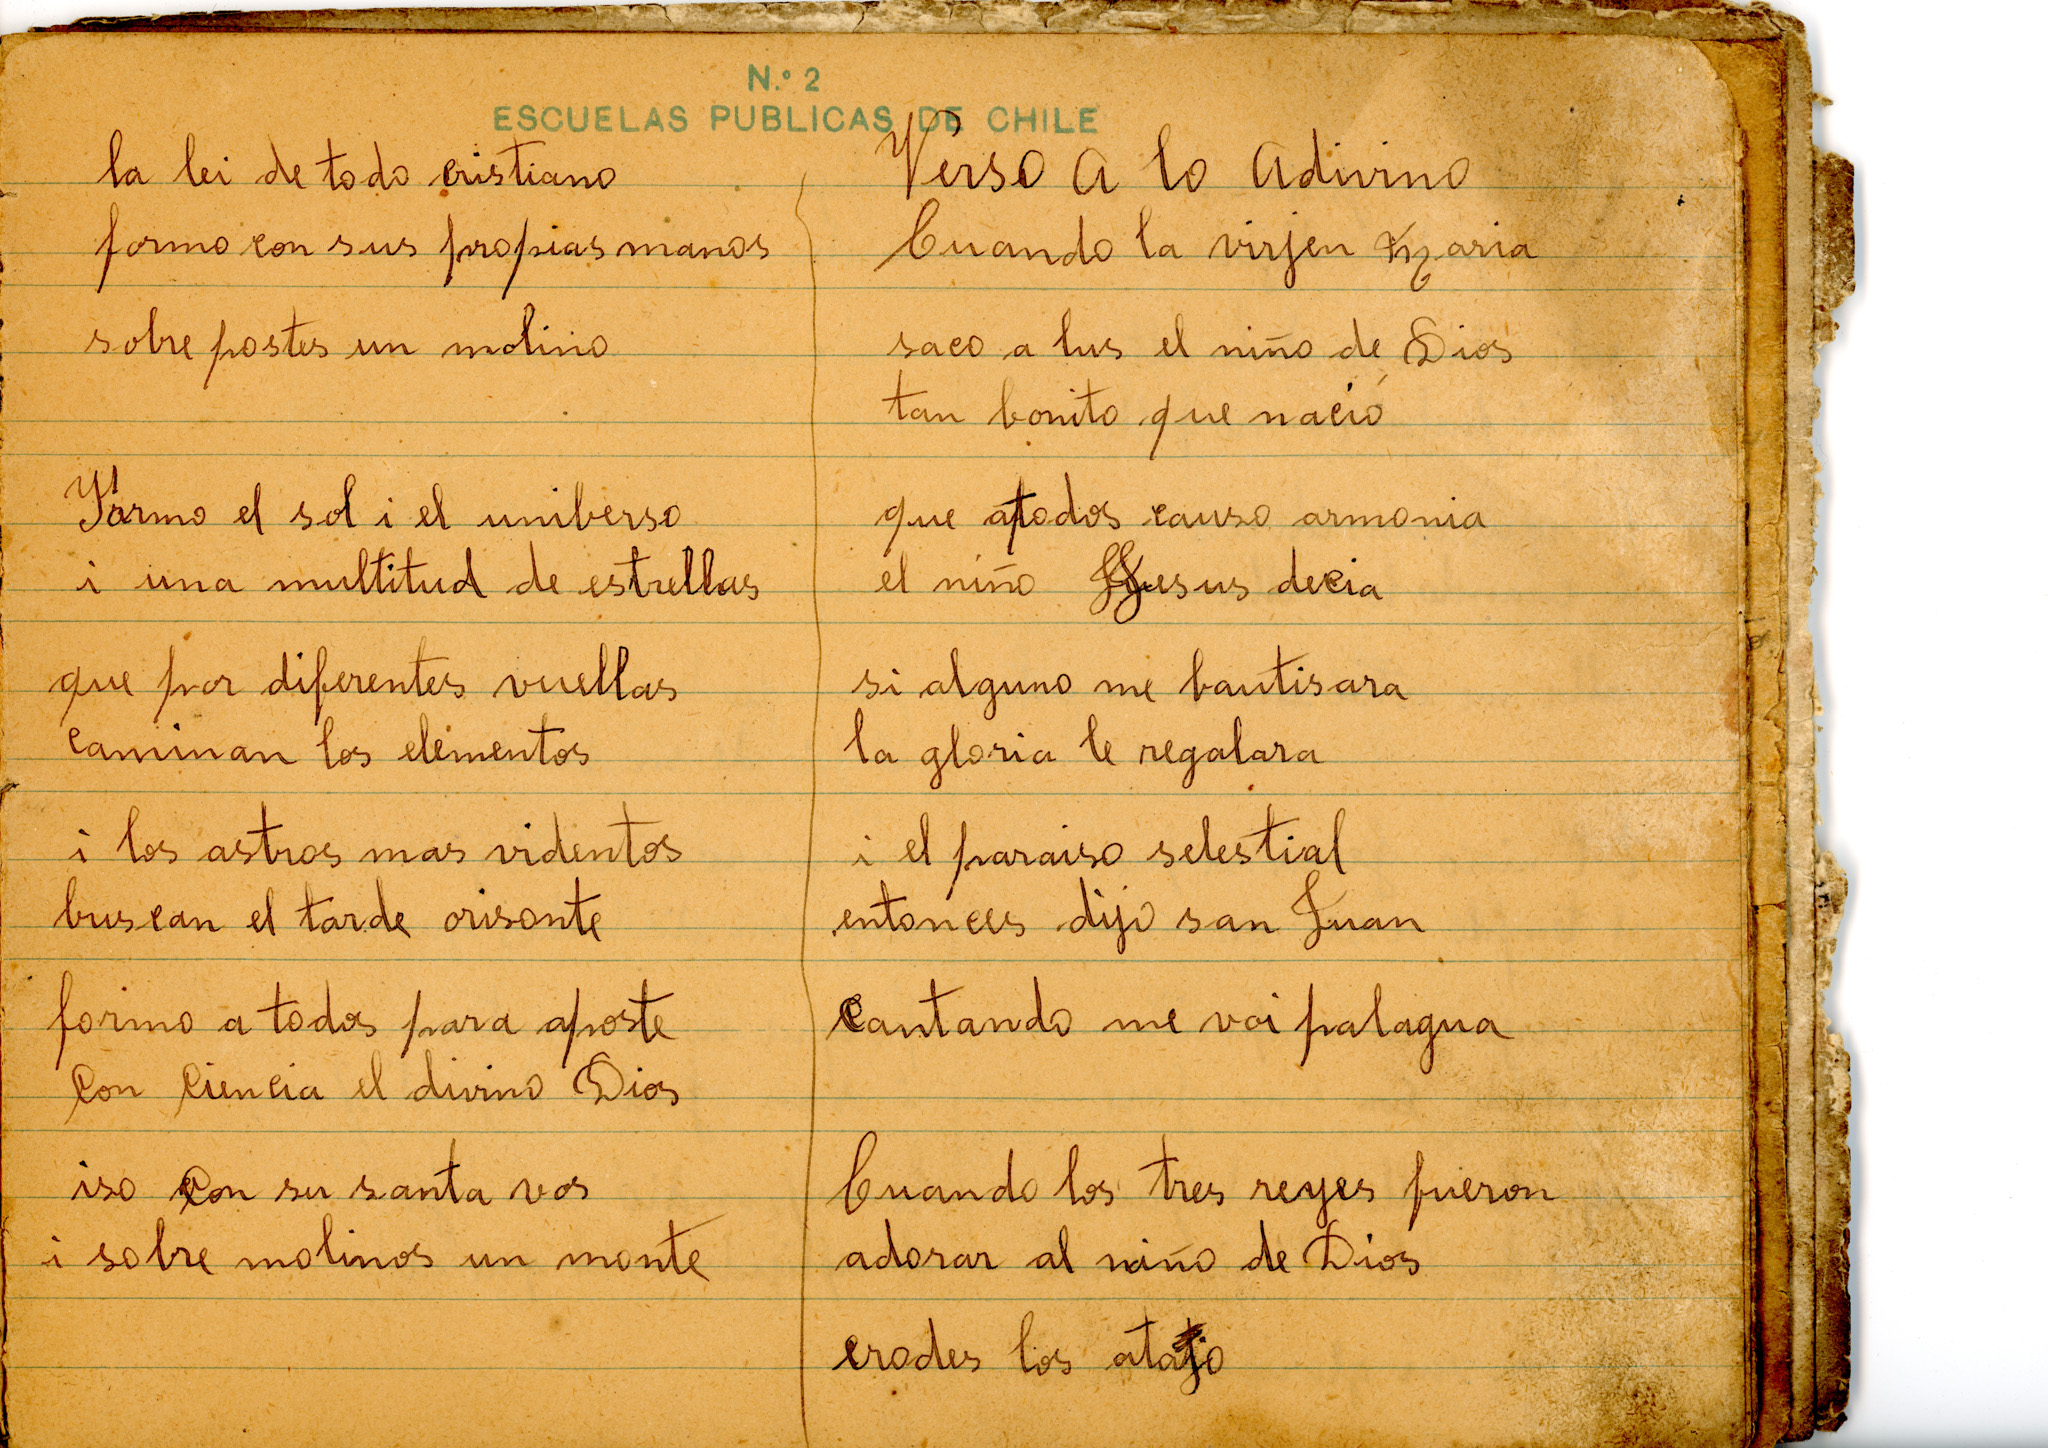 N.º 2
ESCUELAS PUBLICAS DE CHILE
la lei de todo cristiano
formo con sus propias manos
sobre postes un molino
Formo el sol i el uniberso
i una multitud de estrellas
que por diferentes vuellas
caminan los elementos
i los astros mas videntos
buscan el tarde orisonte
formo a todos para aposte
Con Ciencia el divino Dios
iso Con su santa vos
i sobre molinos un monte
Verso A lo Adivino
Cuando la virjen Maria
saco a lus el niño de Dios
tan bonito que nació
que a todos causo armonia
el niño Jesus decia
si alguno me bautisara
la gloria le regalara
i el paraiso selestial
entonces dijo san Juan
Cantando me voi palagua
Cuando los tres reyes fueron
adorar al niño de Dios
erodes los atajo